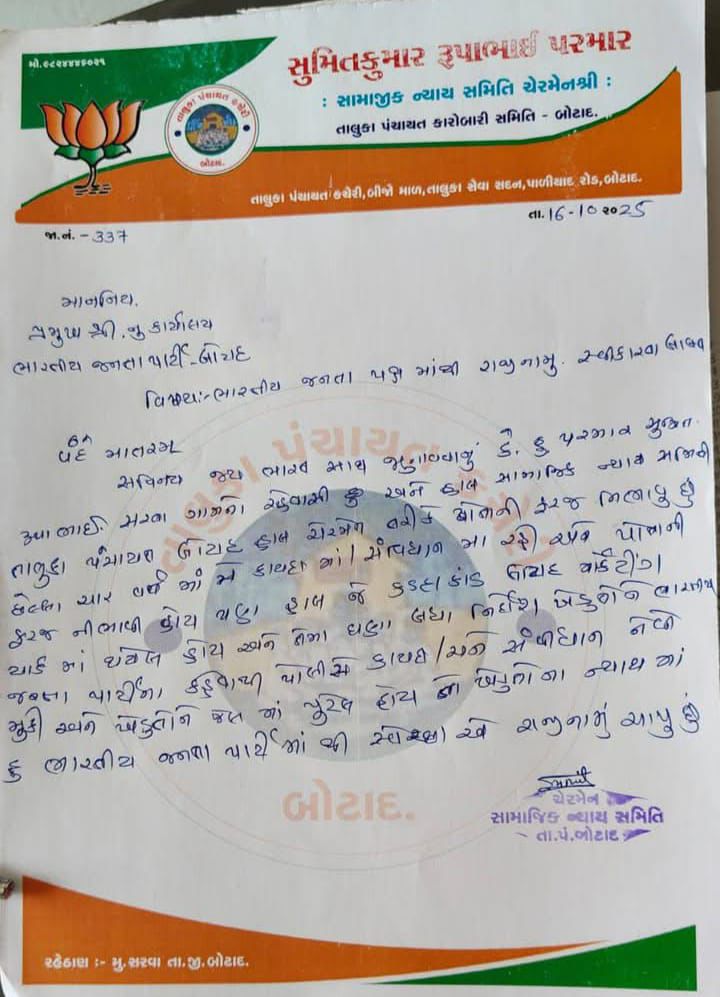 મો.૯૮૨૪૪૪૬૦૨૧
સુમિતકુમાર રૂપાભાઈ પરમાર
: સામાજીક ન્યાય સમિતિ ચેરમેનશ્રી :
તાલુકા પંચાયત કારોબારી સમિતિ - બોટાદ.
તાલુકા પંચાયત કચેરી
બોટાદ.
તાલુકા પંચાયત કચેરી,બીજો માળ,તાલુકા સેવા સદન,પાળીયાદ રોડ,બોટાદ.
જા.નં. - 337
તા. 16-10 ૨૦25
માનનિય.
પ્રમુખ શ્રી.નુ કાર્યાલય
ભારતીય જનતા પાર્ટી - બોટાદ
વિષય:- ભારતીય જનતા પક્ષ માંથી રાજીનામુ. સ્વીકારવા બાબત
વંદે માતરમ
સવિનય જય ભારત સાથ જણાવવાનું કે. હુ પરમાર સુમિત
રૂપાભાઈ સરવા ગામનો રહેવાસી છુ અને હાલ સામાજિક ન્યાય સમિતી
તાલુકા પંચાયત બોટાદ હાલ ચેરમેન તરીકે મારી ફરજ નિભાવુ છું
છેલ્લા ચાર વર્ષ માં મે કાયદા માં/સંવિધાન મા રહી અને પોતાની
ફરજ નીભાવી હોય પણ હાલ જે કડદા કાંડ બોટાદ માર્કેટીંગ
યાર્ડ માં થયેલ હોય અને તેમા ઘણા બધા નિર્દોશ ખેડુતોને ભારતીય
જનતા પાર્ટીના કહેવાથી પોલીસે કાયદો/અને સંવીધાન નેવે
મુકી અને ખેડુતોને જેલ માં પુરેલ હોય તો ખેડુતોના ન્યાય માં
હુ ભારતીય જનતા પાર્ટી માં થી સ્વેચ્છા એ રાજીનામું આપુ છું
તાલુકા પંચાયત કચેરી
બોટાદ.
ચેરમેન
સામાજિક ન્યાય સમિતિ
તા.પં.બોટાદ
રહેઠાણ :- મુ.સરવા તા.જી.બોટાદ.